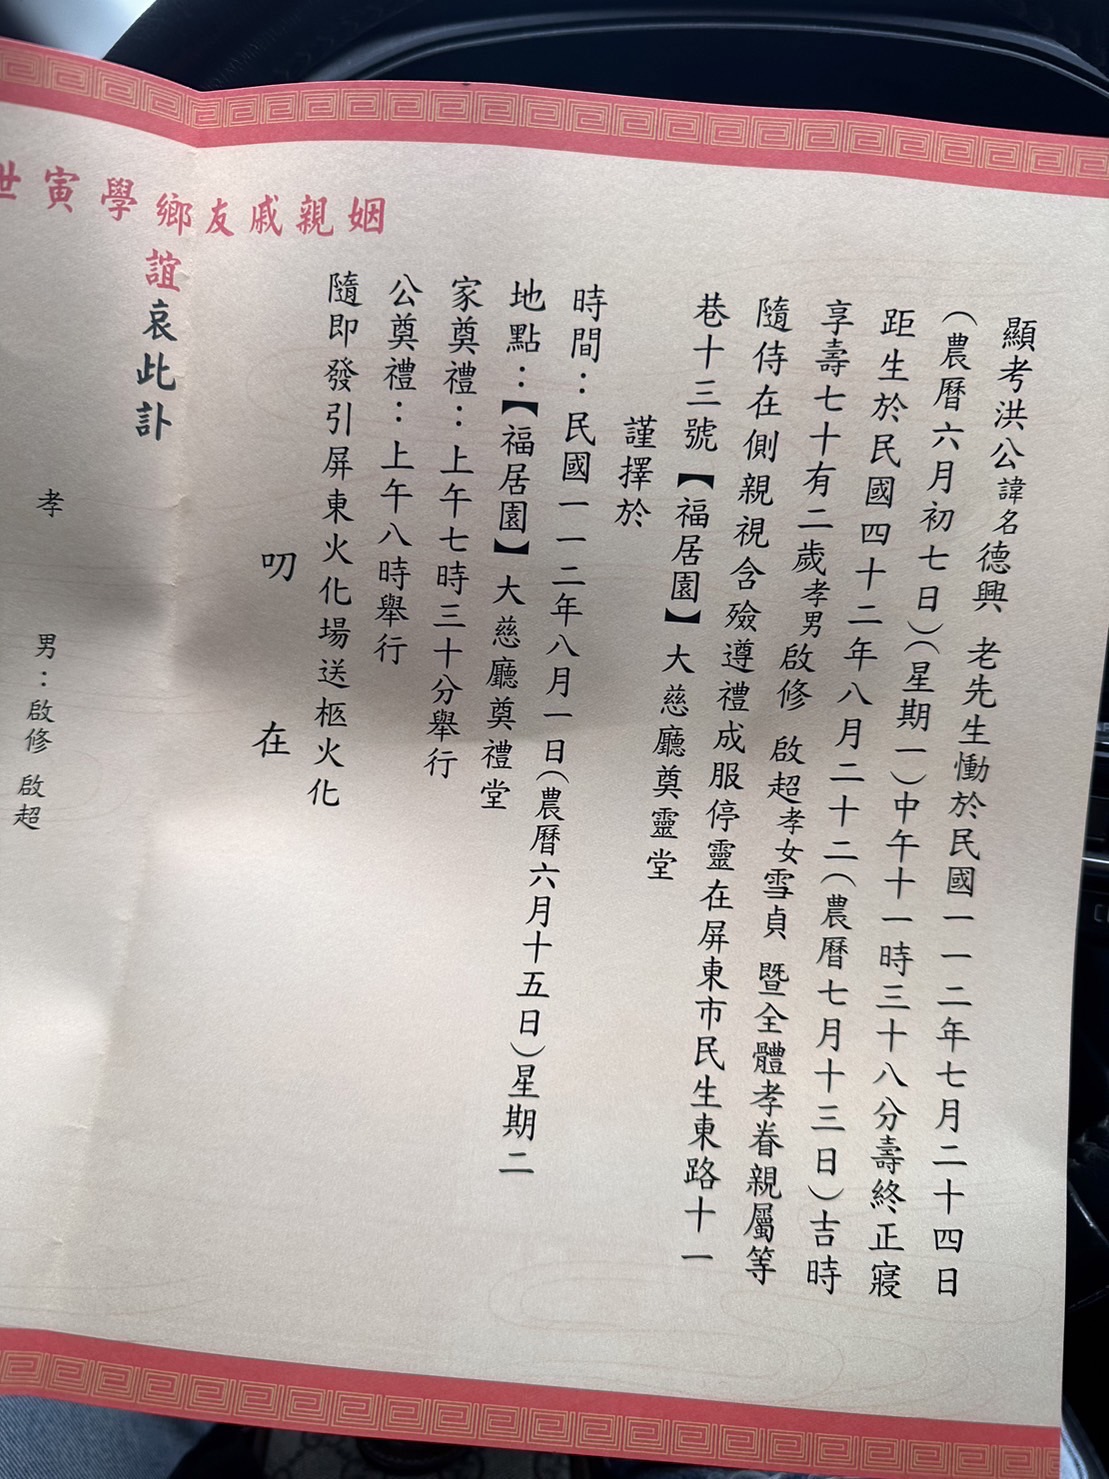 顯考洪公諱名德興 老先生慟於民國一一二年七月二十四日
(農曆六月初七日)(星期一)中午十一時三十八分壽終正寢
距生於民國四十二年八月二十二(農曆七月十三日)吉時
享壽七十有二歲孝男啟修 啟超孝女雪貞 暨全體孝眷親屬等
隨侍在側親視含殮遵禮成服停靈在屏東市民生東路十一
巷十三號【福居園】大慈廳奠靈堂
謹擇於
時間：民國一一二年八月一日(農曆六月十五日)星期二
地點：【福居園】大慈廳奠禮堂
家奠禮：上午七時三十分舉行
公奠禮：上午八時舉行
隨即發引屏東火化場送柩火化
叨 在
姻親戚友鄉學寅世
誼哀此訃
孝 男：啟修 啟超